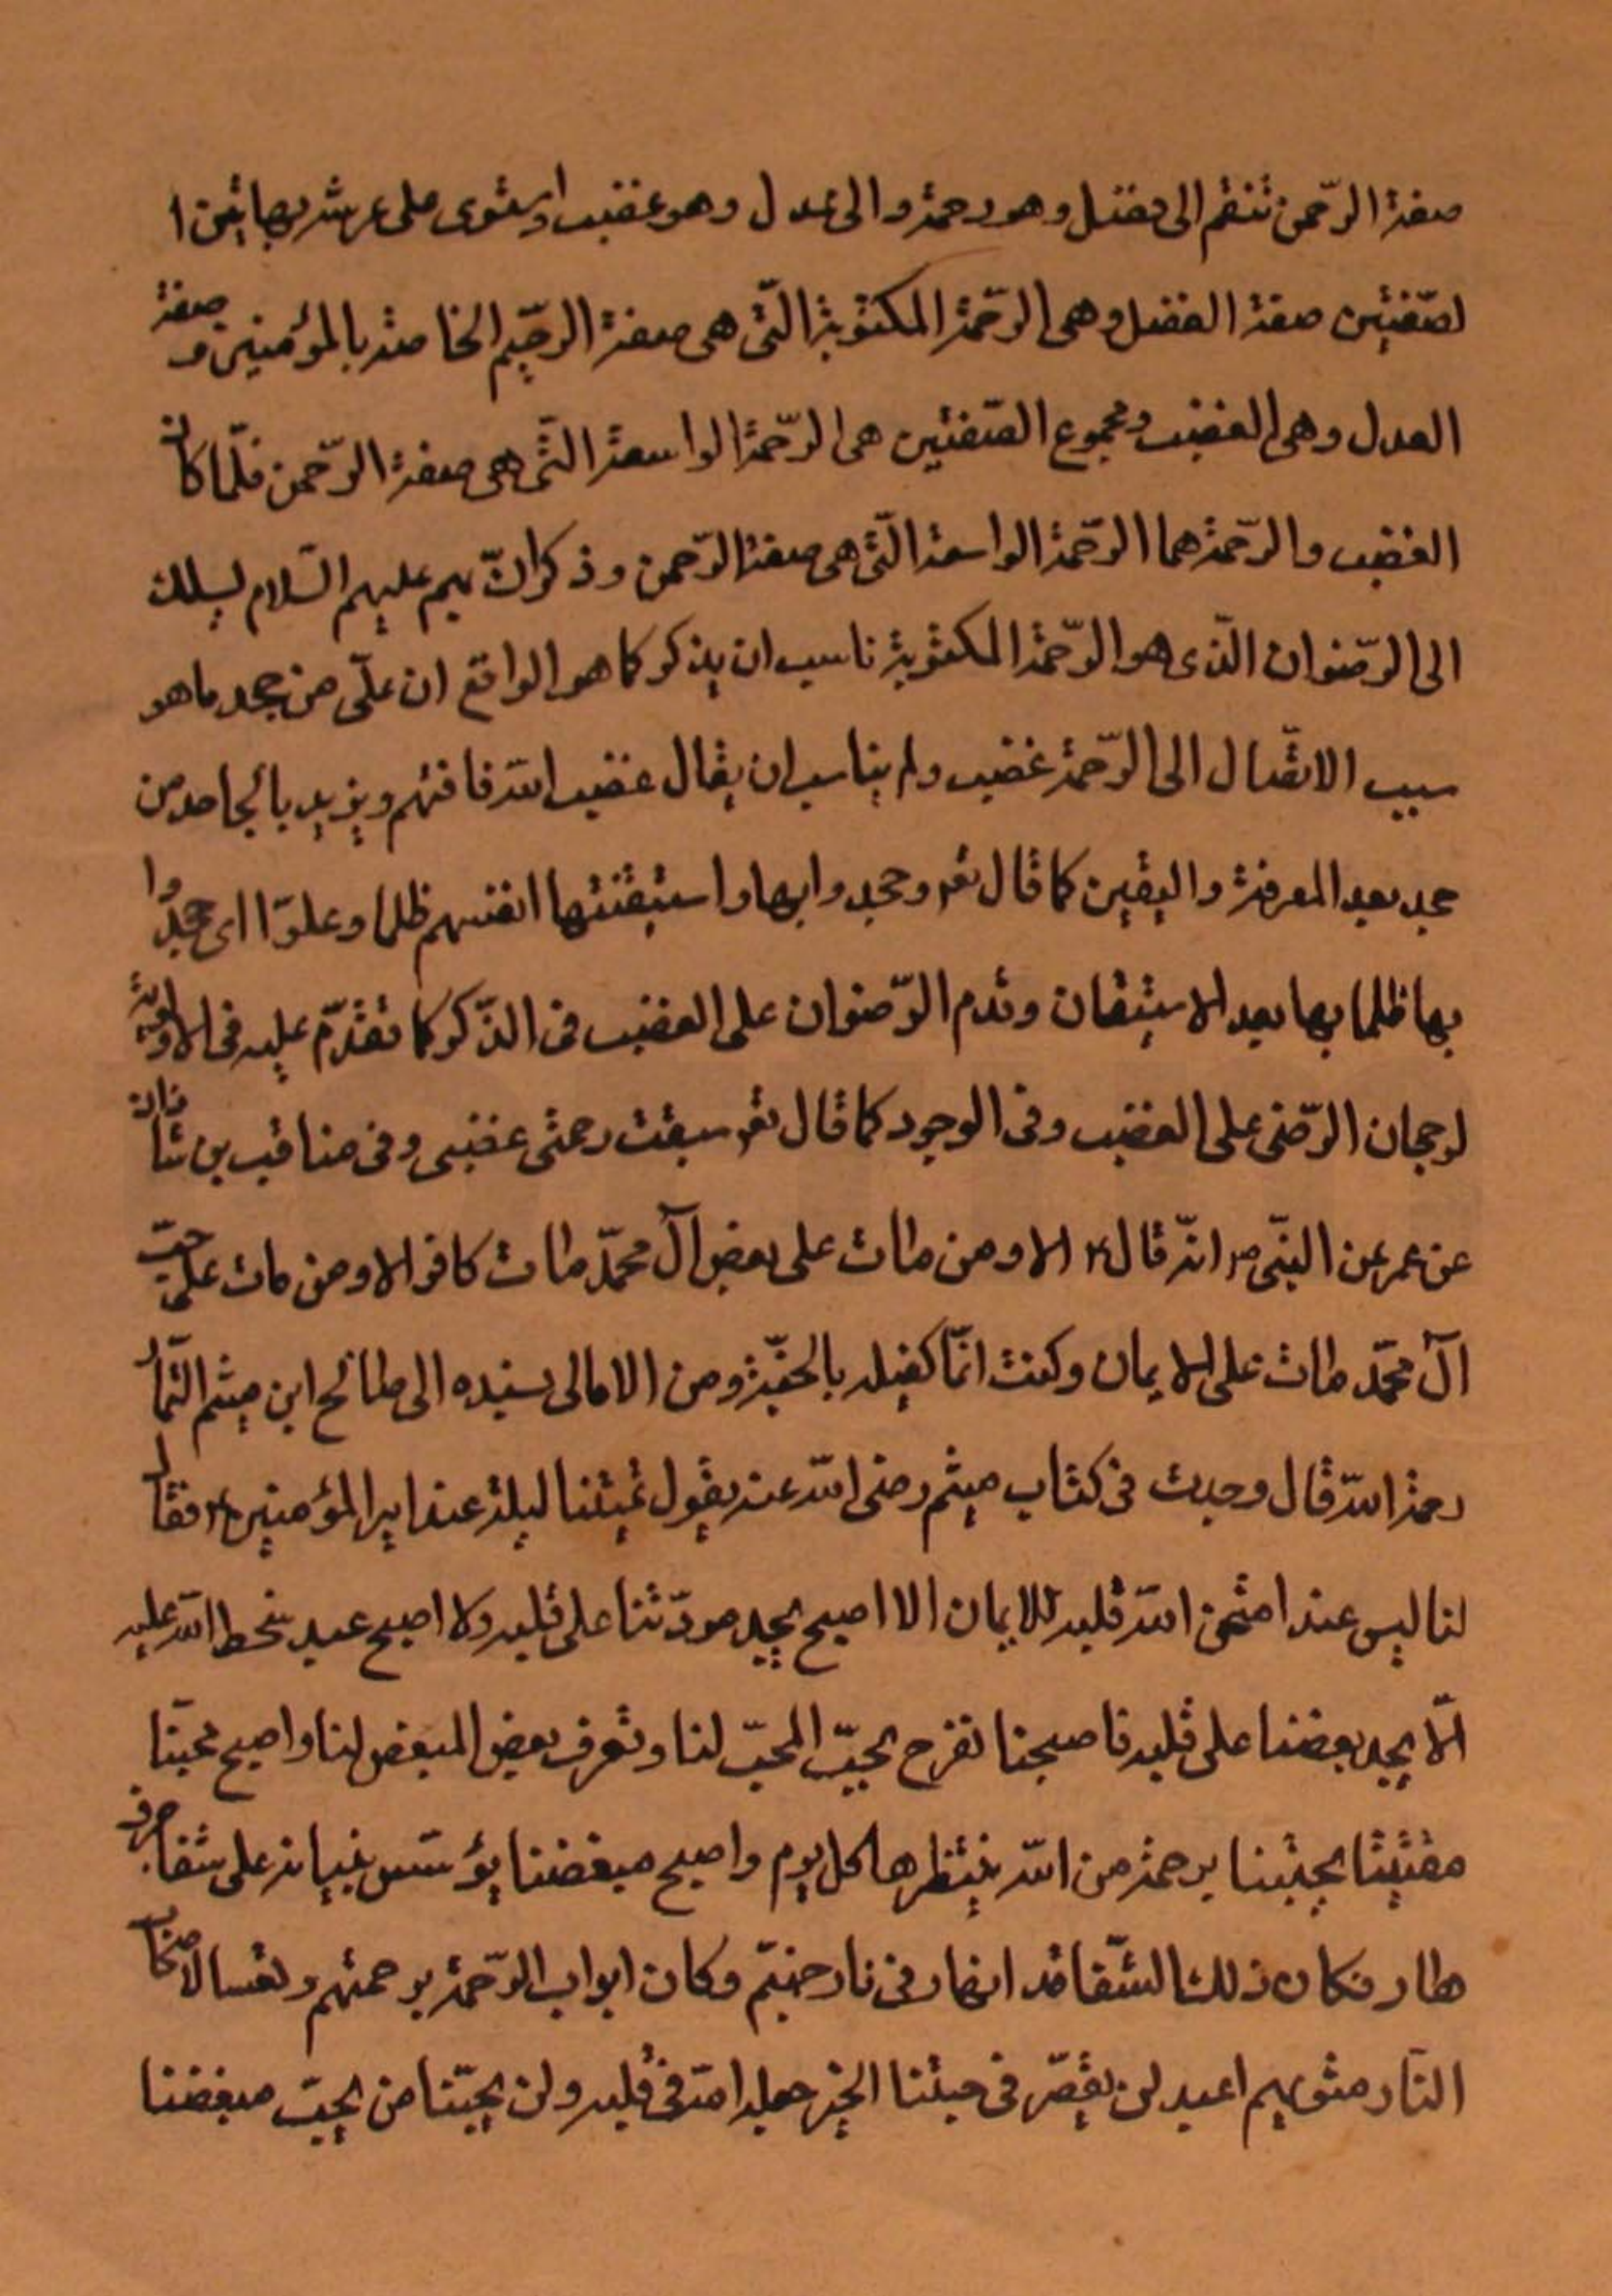 صفة الرّحمن تنقسم الى فضل وهو رحمة والى عدل وهو غضب واستوى على عرشه بهاتين ا
لصّفتين صفة الفضل وهى الرّحمة المكتوبة الّتى هى صفة الرّحيم الخاصّة بالمؤمنين و صفة
العدل وهى الغضب ومجموع الصّفتين هى الرّحمة الواسعة الّتى هى صفة الرّحمن فلمّا كان
الغضب والرّحمة هما الرّحمة الواسعة الّتى هى صفة الرّحمن وذكر انّ بهم عليهم السّلام يسلك
الى الرّضوان الّذى هو الرّحمة المكتوبة ناسب ان يذكر كما هو الواقع ان على من جحد ما هو
سبب الاتّصال الى الرّحمة غضب ولم يناسب ان يقال غضب الله فافهم ويريد بالجاحد من
جحد بعد المعرفة واليقين كما قال تعالى وجحدوا بها واستيقنتها انفسهم ظلما وعلوّا اى جحدوا
بها ظلما بها بعد الاستيقان وقدم الرّضوان على الغضب فى الذّكر كما تقدّم عليه فى الاولوية
لرجحان الرّضى على الغضب وفى الوجود كما قال تعالى سبقت رحمتى غضبى وفى مناقب بن شاذان
عن عمر عن النبّى ص انّه قال الا ومن مات على بغض آل محمّد مات كافرا الا ومن مات على حبّ
آل محمّد مات على الايمان وكنت انّا كفيله بالجنّة ومن الامالى بسنده الى صالح ابن ميثم التّمار
رحمة الله قال وجدت فى كتاب ميثم رضى الله عنه يقول تمسّينا ليلة عند امير المؤمنين ع فقال
لنا ليس عبد امتحن الله قلبه للايمان الا اصبح يجد مودّتنا على قلبه ولا اصبح عبد سخط الله عليه
الّا يجد بغضنا على قلبه فاصبحنا نفرح بحبّ المحبّ لنا ونعرف بغض المبغض لنا واصبح محبّنا
مغتبطا بحبّنا برحمة من الله ينتظرها كل يوم واصبح مبغضنا يؤسّس بنيانه على شفا جرف
هار فكان ذلك الشّفا قد انهار فى نار جهنّم وكان ابواب الرّحمة برحمتهم وتعسا لاصحاب
النّار مثويهم اعبد لن يقصّر فى حبّنا الخير جعله الله فى قلبه ولن يحبّنا من يحبّ مبغضنا